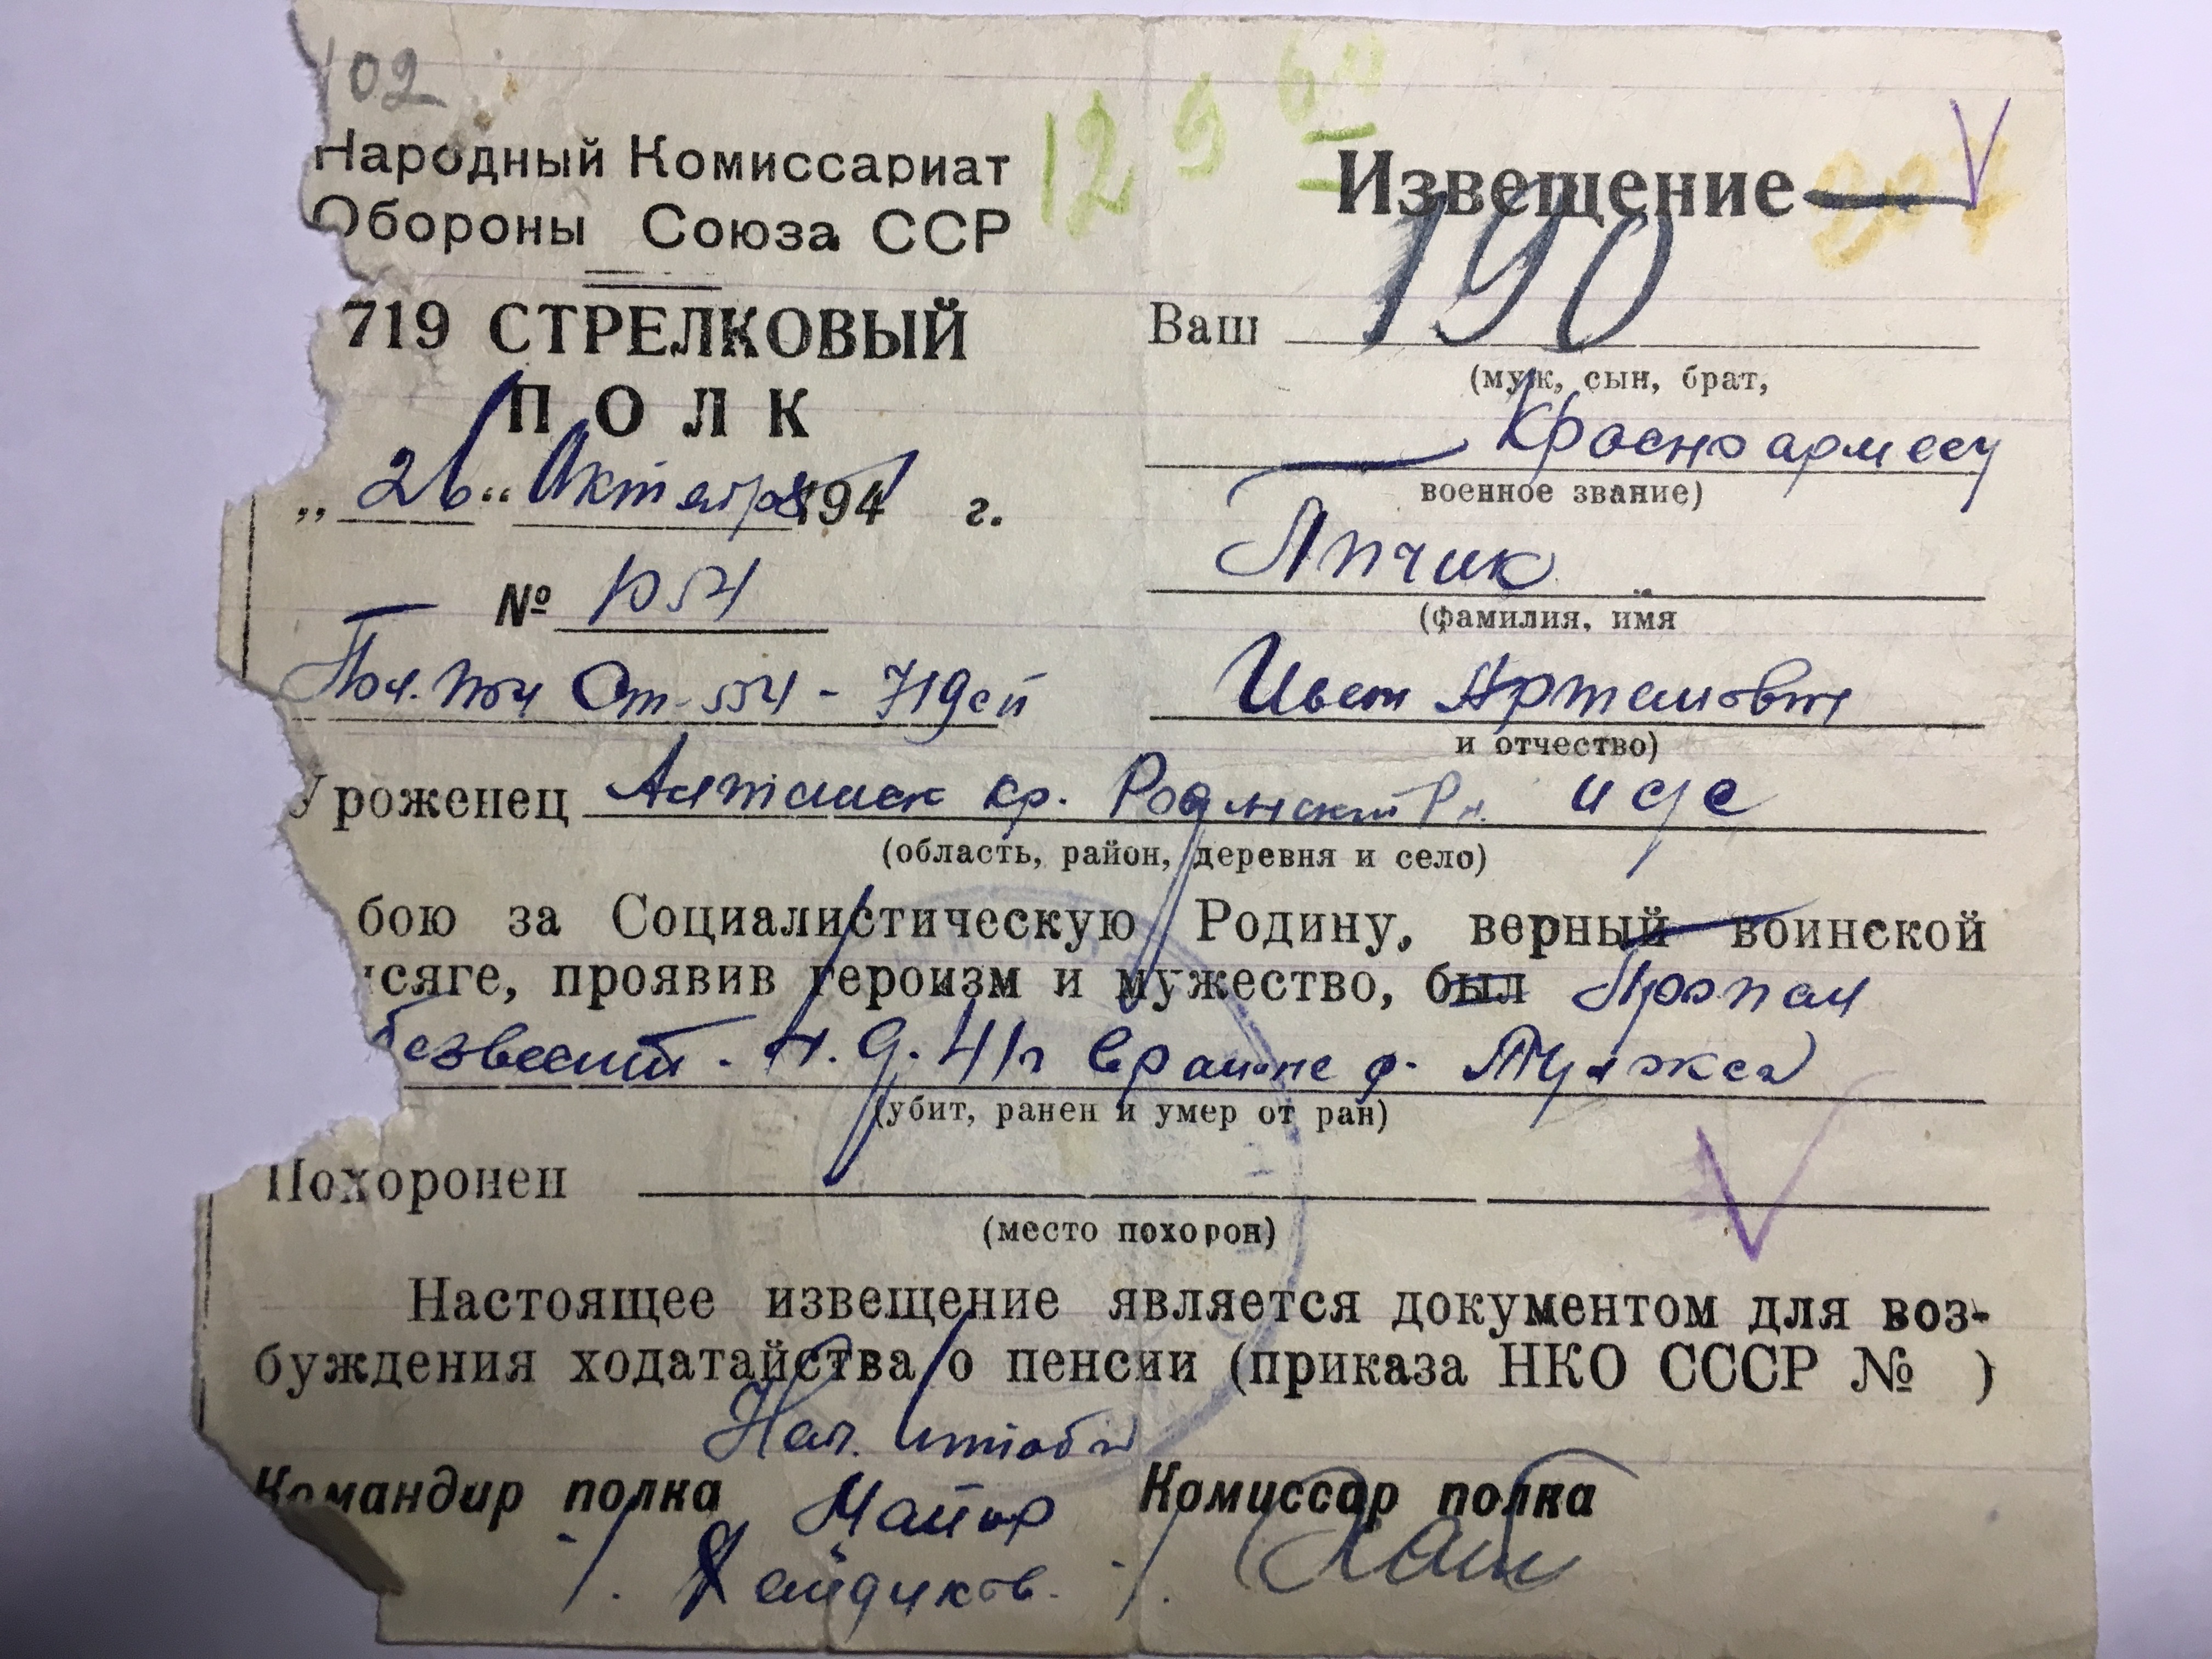 102
12 9
Народный Комиссариат
Обороны Союза ССР
Извещение
190
719 СТРЕЛКОВЫЙ
ПОЛК
„ 26 “ Октября 1941 г.
№ 1054
Ваш
(муж, сын, брат,
Красноармеец
военное звание)
Япчик
(фамилия, имя
Иван Артамович
и отчество)
Уроженец Алтайск кр. Родинский Рн.
(область, район, деревня и село)
бою за Социалистическую Родину, верный воинской
исяге, проявив героизм и мужество, был Пропал
безвести. 4.9.41г в районе д.
(убит, ранен и умер от ран)
Похоронен
(место похорон)
Настоящее извещение является документом для воз-
буждения ходатайства о пенсии (приказа НКО СССР № )
Нач. штаба
Командир полка Майор Комиссар полка